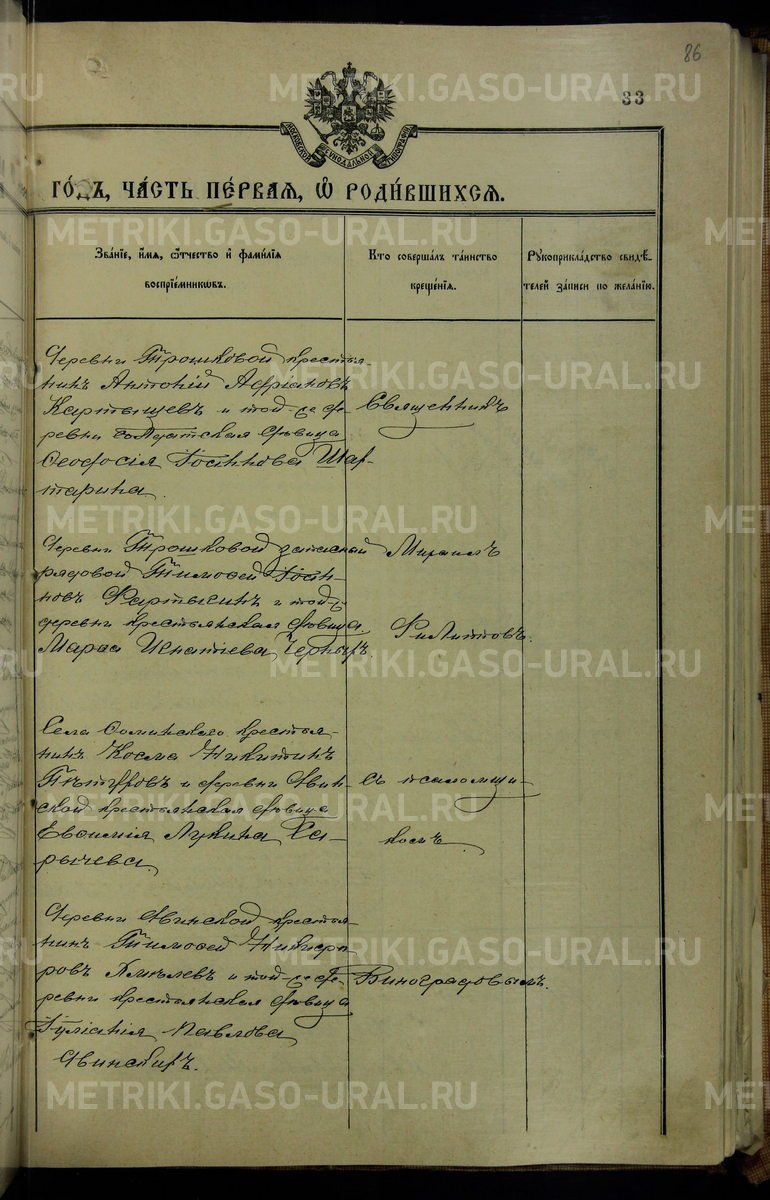 86
33
МОСКОВСКОЙ СѴНОДАЛЬНОЙ ТИПОГРАФІИ
ГО́ДЪ, ЧА́СТЬ ПЕ́РВАЯ, Ѽ РОДИ́ВШИХСЯ.
Зва́нїе, и́мя, ѻ҆́тчество и҆ фами́лїя
воспрїе́мникωвъ.
Кто соверша́лъ та́инство
креще́нїя.
Рꙋкоприкла́дство свидѣ́-
телей за́писи по жела́нїю.
Деревни Трошковой крестья-
нинъ Антоній Адріановъ
Картышевъ и той-же де-
ревни солдатская дѣвица
Ѳеодосія Іоакинова Шаф-
тарина.
Священникъ
Деревни Трошковой запасный
рядовой Тимоѳей
новъ и той-же
деревни крестьянская дѣвица
Марѳа Игнатіева Черныхъ.
Михаилъ
Филипповъ.
Села Фоминскаго крестья-
нинъ Косма Никитинъ
Пѣтуховъ и деревни Явин-
ской крестьянская дѣвица
Евѳимія Лукина Са-
рычева.
съ псаломщи-
комъ
Деревни Явинской крестья-
нинъ Тимоѳей Никифо-
ровъ и той-же де-
ревни крестьянская дѣвица
Іуліанія Павлова
Явинскихъ.
Виноградовымъ.
METRIKI.GASO-URAL.RU